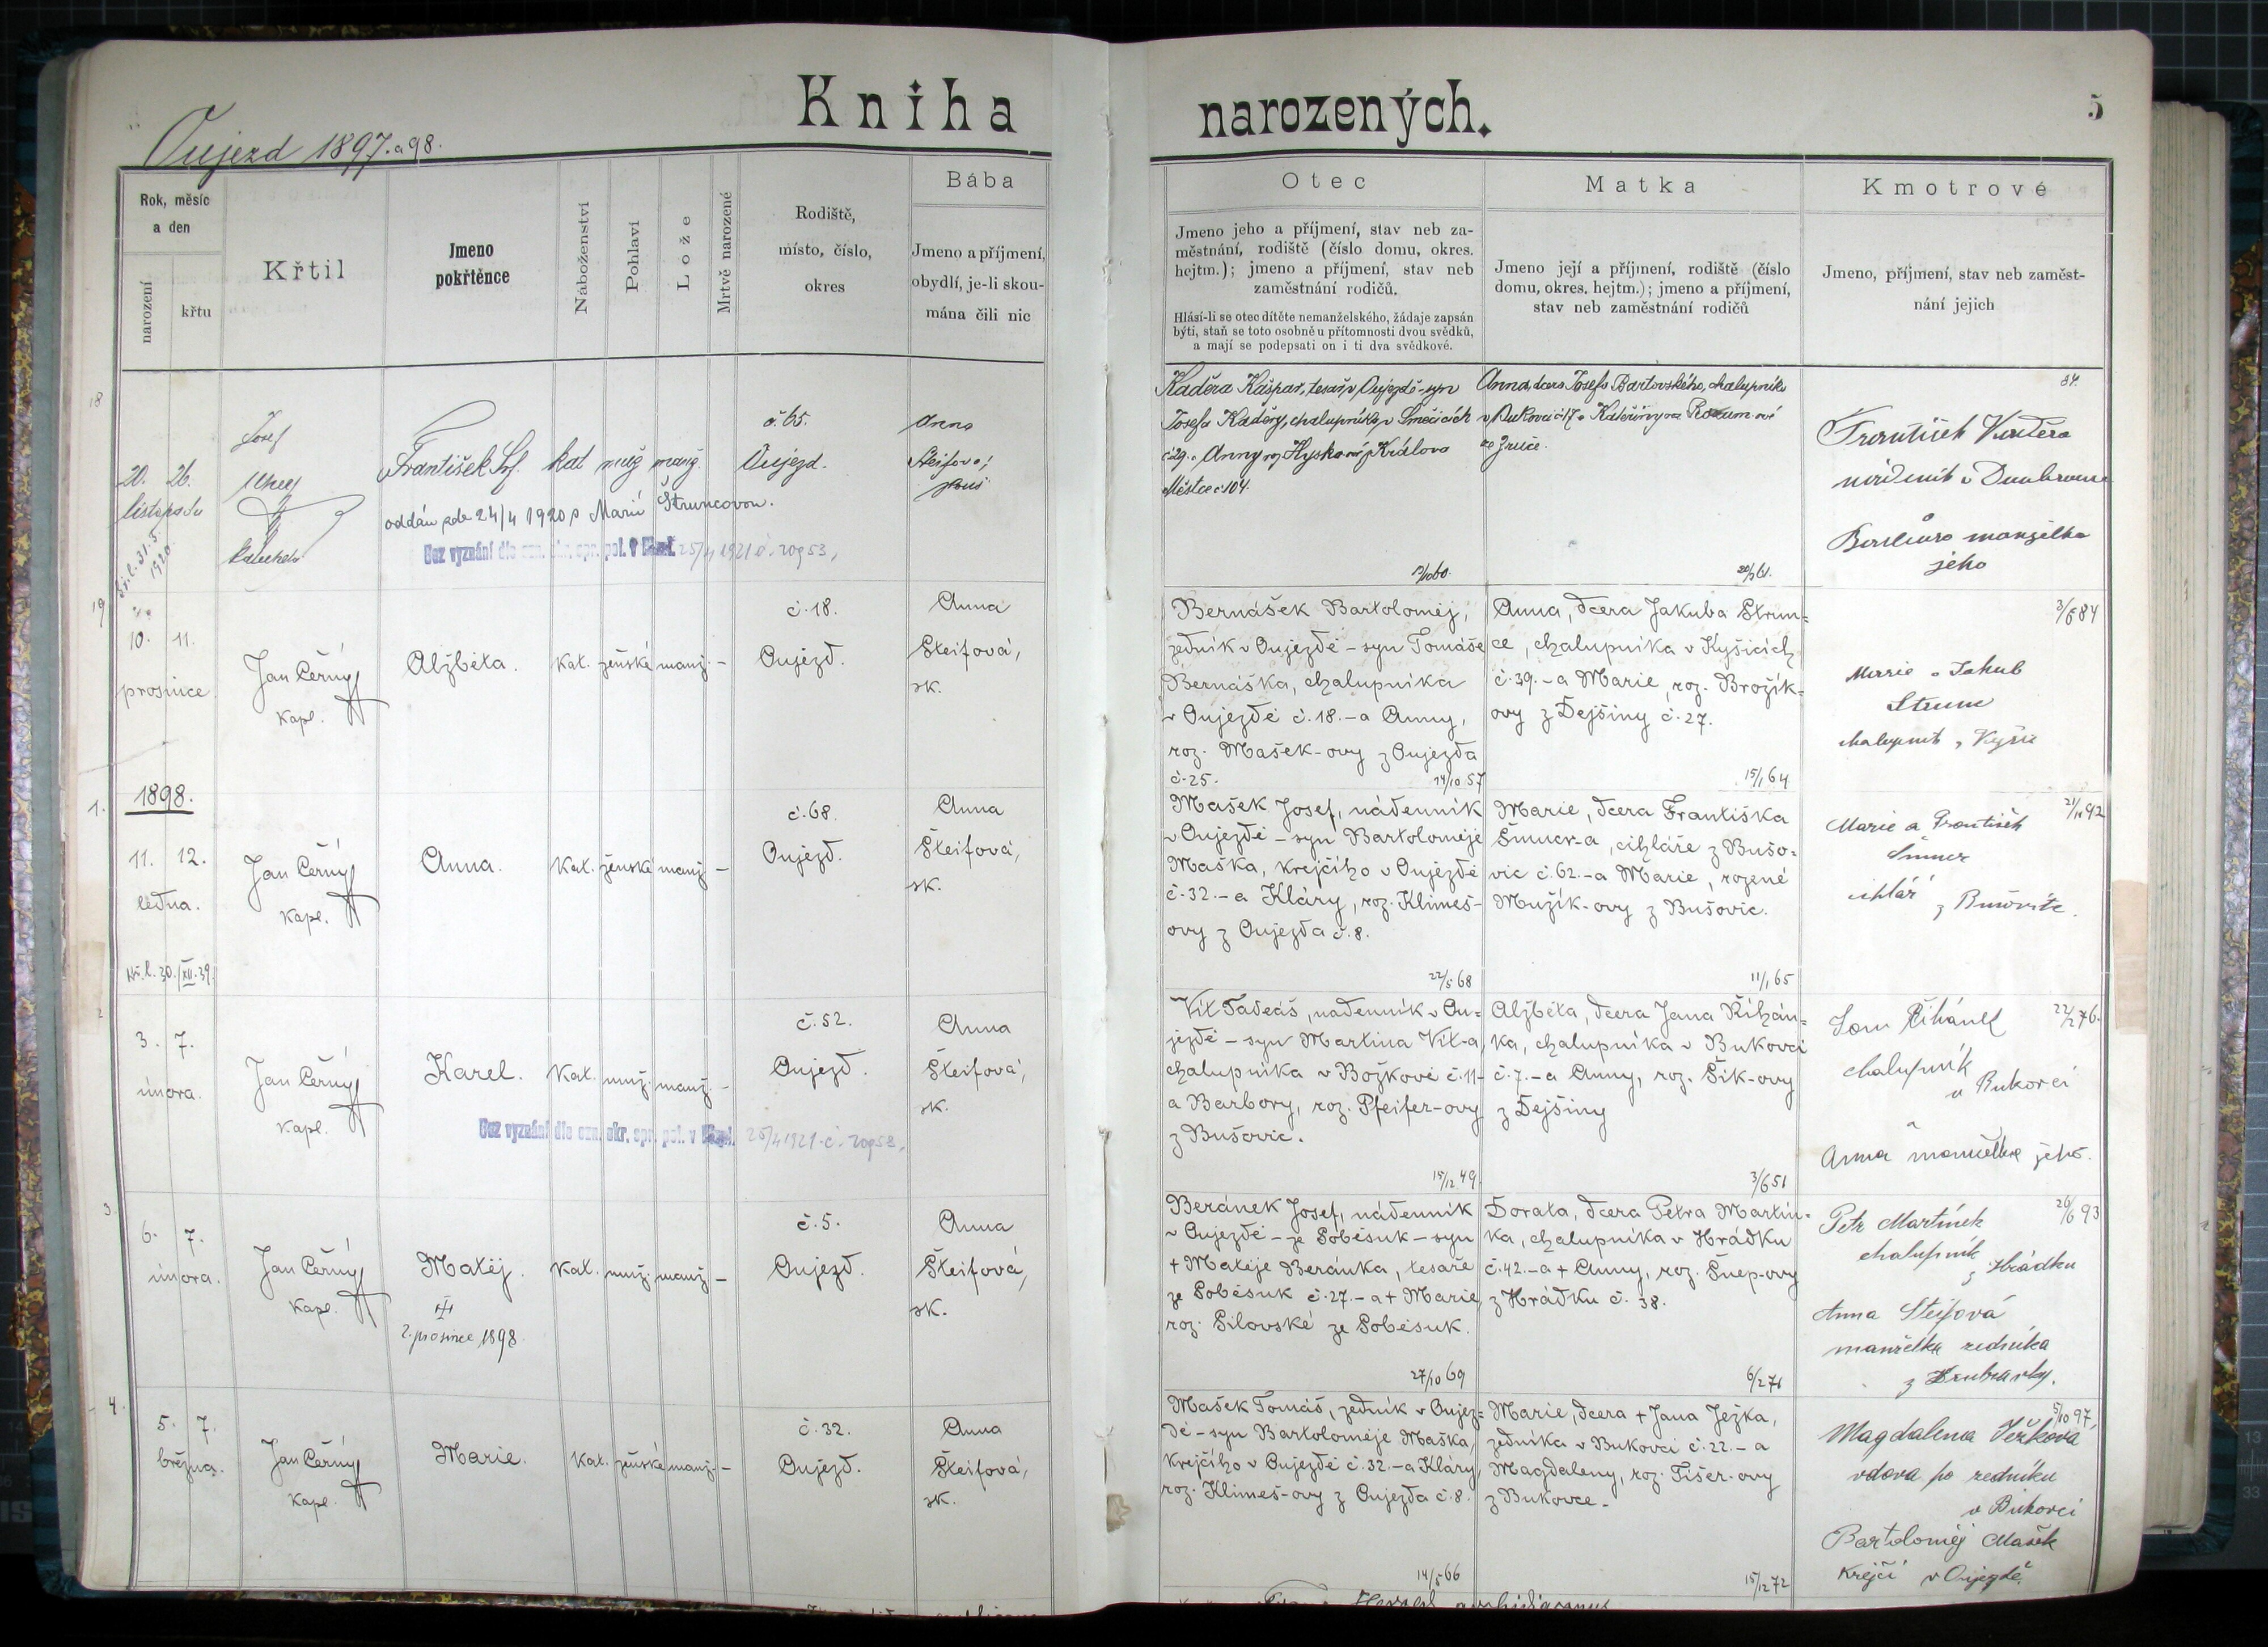 Kniha narozených.
5
Oujezd 1897. a 98.
Rok, měsíc
a den
narození
křtu
Křtil
Jmeno
pokřtěnce
Náboženství
Pohlaví
Lože
Mrtvě narozené
Rodiště,
místo, číslo,
okres
Bába
Jmeno a příjmení,
obydlí, je-li skou-
mána čili nic
Otec
Jmeno jeho a příjmení, stav neb za-
městnání, rodiště (číslo domu, okres.
hejtm.); jmeno a příjmení, stav neb
zaměstnání rodičů.
Hlásí-li se otec dítěte nemanželského, žádaje zapsán
býti, staň se toto osobně u přítomnosti dvou svědků,
a mají se podepsati on i ti dva svědkové.
Matka
Jmeno její a příjmení, rodiště (číslo
domu, okres. hejtm.); jmeno a příjmení,
stav neb zaměstnání rodičů
Kmotrové
Jmeno, příjmení, stav neb zaměst-
nání jejich
18
20. 26.
listopadu
31.5.
1920
Josef
katecheta
František Srf. kat muž manž.
oddán zde 24/4 1920 s Marií Štruncovou.
Bez vyznání dle ozn. okr. spr. pol. v Plzni 25/4 1921 č. 20953,
č. 65.
Oujezd.
Anna
Šteifová,
Kaděra Kašpar, tesař v Oujezdě - syn
Josefa Kaděry, chalupníka v Smědčicích
č. 29. a Anny roz. Hyskové z Králova
Městce č. 104.
13/1060.
Anna, dcera Josefa Bartovského, chalupníka
v Bukovci č. 17 a Kateřiny roz.
ze Zruče.
20/361.
84.
František Kuděra
nádeník v Doubravce
Barbora manželka
jeho
19
10. 11.
prosince.
Jan Černý
kapl.
Alžběta. kat. ženské manž. –
č. 18.
Oujezd.
Anna
Šteifová,
zk.
Bernášek Bartoloměj,
zedník v Oujezdě – syn Tomáše
Bernáška, chalupníka
v Oujezdě č. 18. – a Anny,
roz. Mašek-ovy z Oujezda
č. 25.
14/10 57
Anna, dcera Jakuba Strun=
ce, chalupníka v Kyšicích
č. 39. – a Marie, roz. Brožík-
ovy z Dejšiny č. 27.
15/1 64
3/5 84
Marie a Jakub
Strunc
chalupník z Kyšic
1.
1898.
11. 12.
ledna.
30./XII.39.
Jan Černý
kapl.
Anna. kat. ženské manž. –
č. 68.
Oujezd.
Anna
Šteifová,
zk.
Mašek Josef, nádenník
v Oujezdě – syn Bartoloměje
Maška, krejčího v Oujezdě
č. 32. – a Kláry, roz. Klimeš-
ovy z Oujezda č. 8.
22/5 68
Marie, dcera Františka
Šmucr-a, cihláře z Bušo=
vic č. 62. – a Marie, rozené
Mužík-ovy z Bušovic.
11/1 65
21/11 92
Marie a František
Šmucr
cihlář z Bušovic.
2
3. 7.
února.
Jan Černý
kapl.
Karel. kat. muž. manž. –
Bez vyznání dle ozn. okr. spr. pol. v Plzni. 25/4 1921 č. 20953,
č. 52.
Oujezd.
Anna
Šteifová,
zk.
Vít Tadeáš, nádenník v Ou=
jezdě – syn Martina Vít-a,
chalupníka v Božkově č. 11 –
a Barbory, roz. Pfeifer-ovy
z Bušovic.
15/12 49
Alžběta, dcera Jana Říhán=
ka, chalupníka v Bukovci
č. 7. – a Anny, roz. Šik-ovy
z Dejšiny
3/6 51
22/2 76.
Jan Říhánek
chalupník
v Bukovci
Anna manželka jeho.
3
6. 7.
února.
Jan Černý
kapl.
Matěj. kat. muž. manž. –
2. prosince 1898.
č. 5.
Oujezd.
Anna
Šteifová,
zk.
Beránek Josef, nádenník
v Oujezdě – ze Soběsuk – syn
+ Matěje Beránka, tesaře
ze Soběsuk č. 27. – a + Marie,
roz. Silovské ze Soběsuk.
27/10 69
Dorata, dcera Petra Martín=
ka, chalupníka v Hrádku
č. 42. – a + Anny, roz. Šnep-ovy
z Hrádku č. 38.
6/2 71
26/6 93
Petr Martínek
chalupník
z Hrádku
Anna Steifová
manželka zedníka
z Doubravky.
4.
5. 7.
března.
Jan Černý
kapl.
Marie. kat. ženské manž. –
č. 32.
Oujezd.
Anna
Šteifová,
zk.
Mašek Tomáš, zedník v Oujez=
dě – syn Bartoloměje Maška,
krejčího v Oujezdě č. 32. – a Kláry,
roz. Klimeš-ovy z Oujezda č. 8.
14/5 66
Marie, dcera + Jana Ježka,
zedníka v Bukovci č. 22. – a
Magdaleny, roz. Tišer-ovy
z Bukovce.
15/12 72
5/10 97,
Magdalena Ježková
vdova po zedníku
v Bukovci
Bartoloměj Mašek
krejčí v Oujezdě.